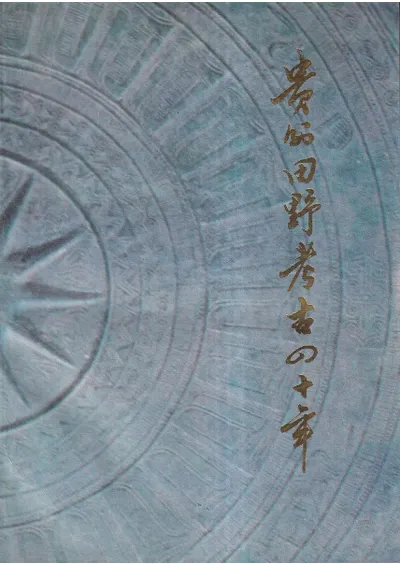 贵州田野考古四十年